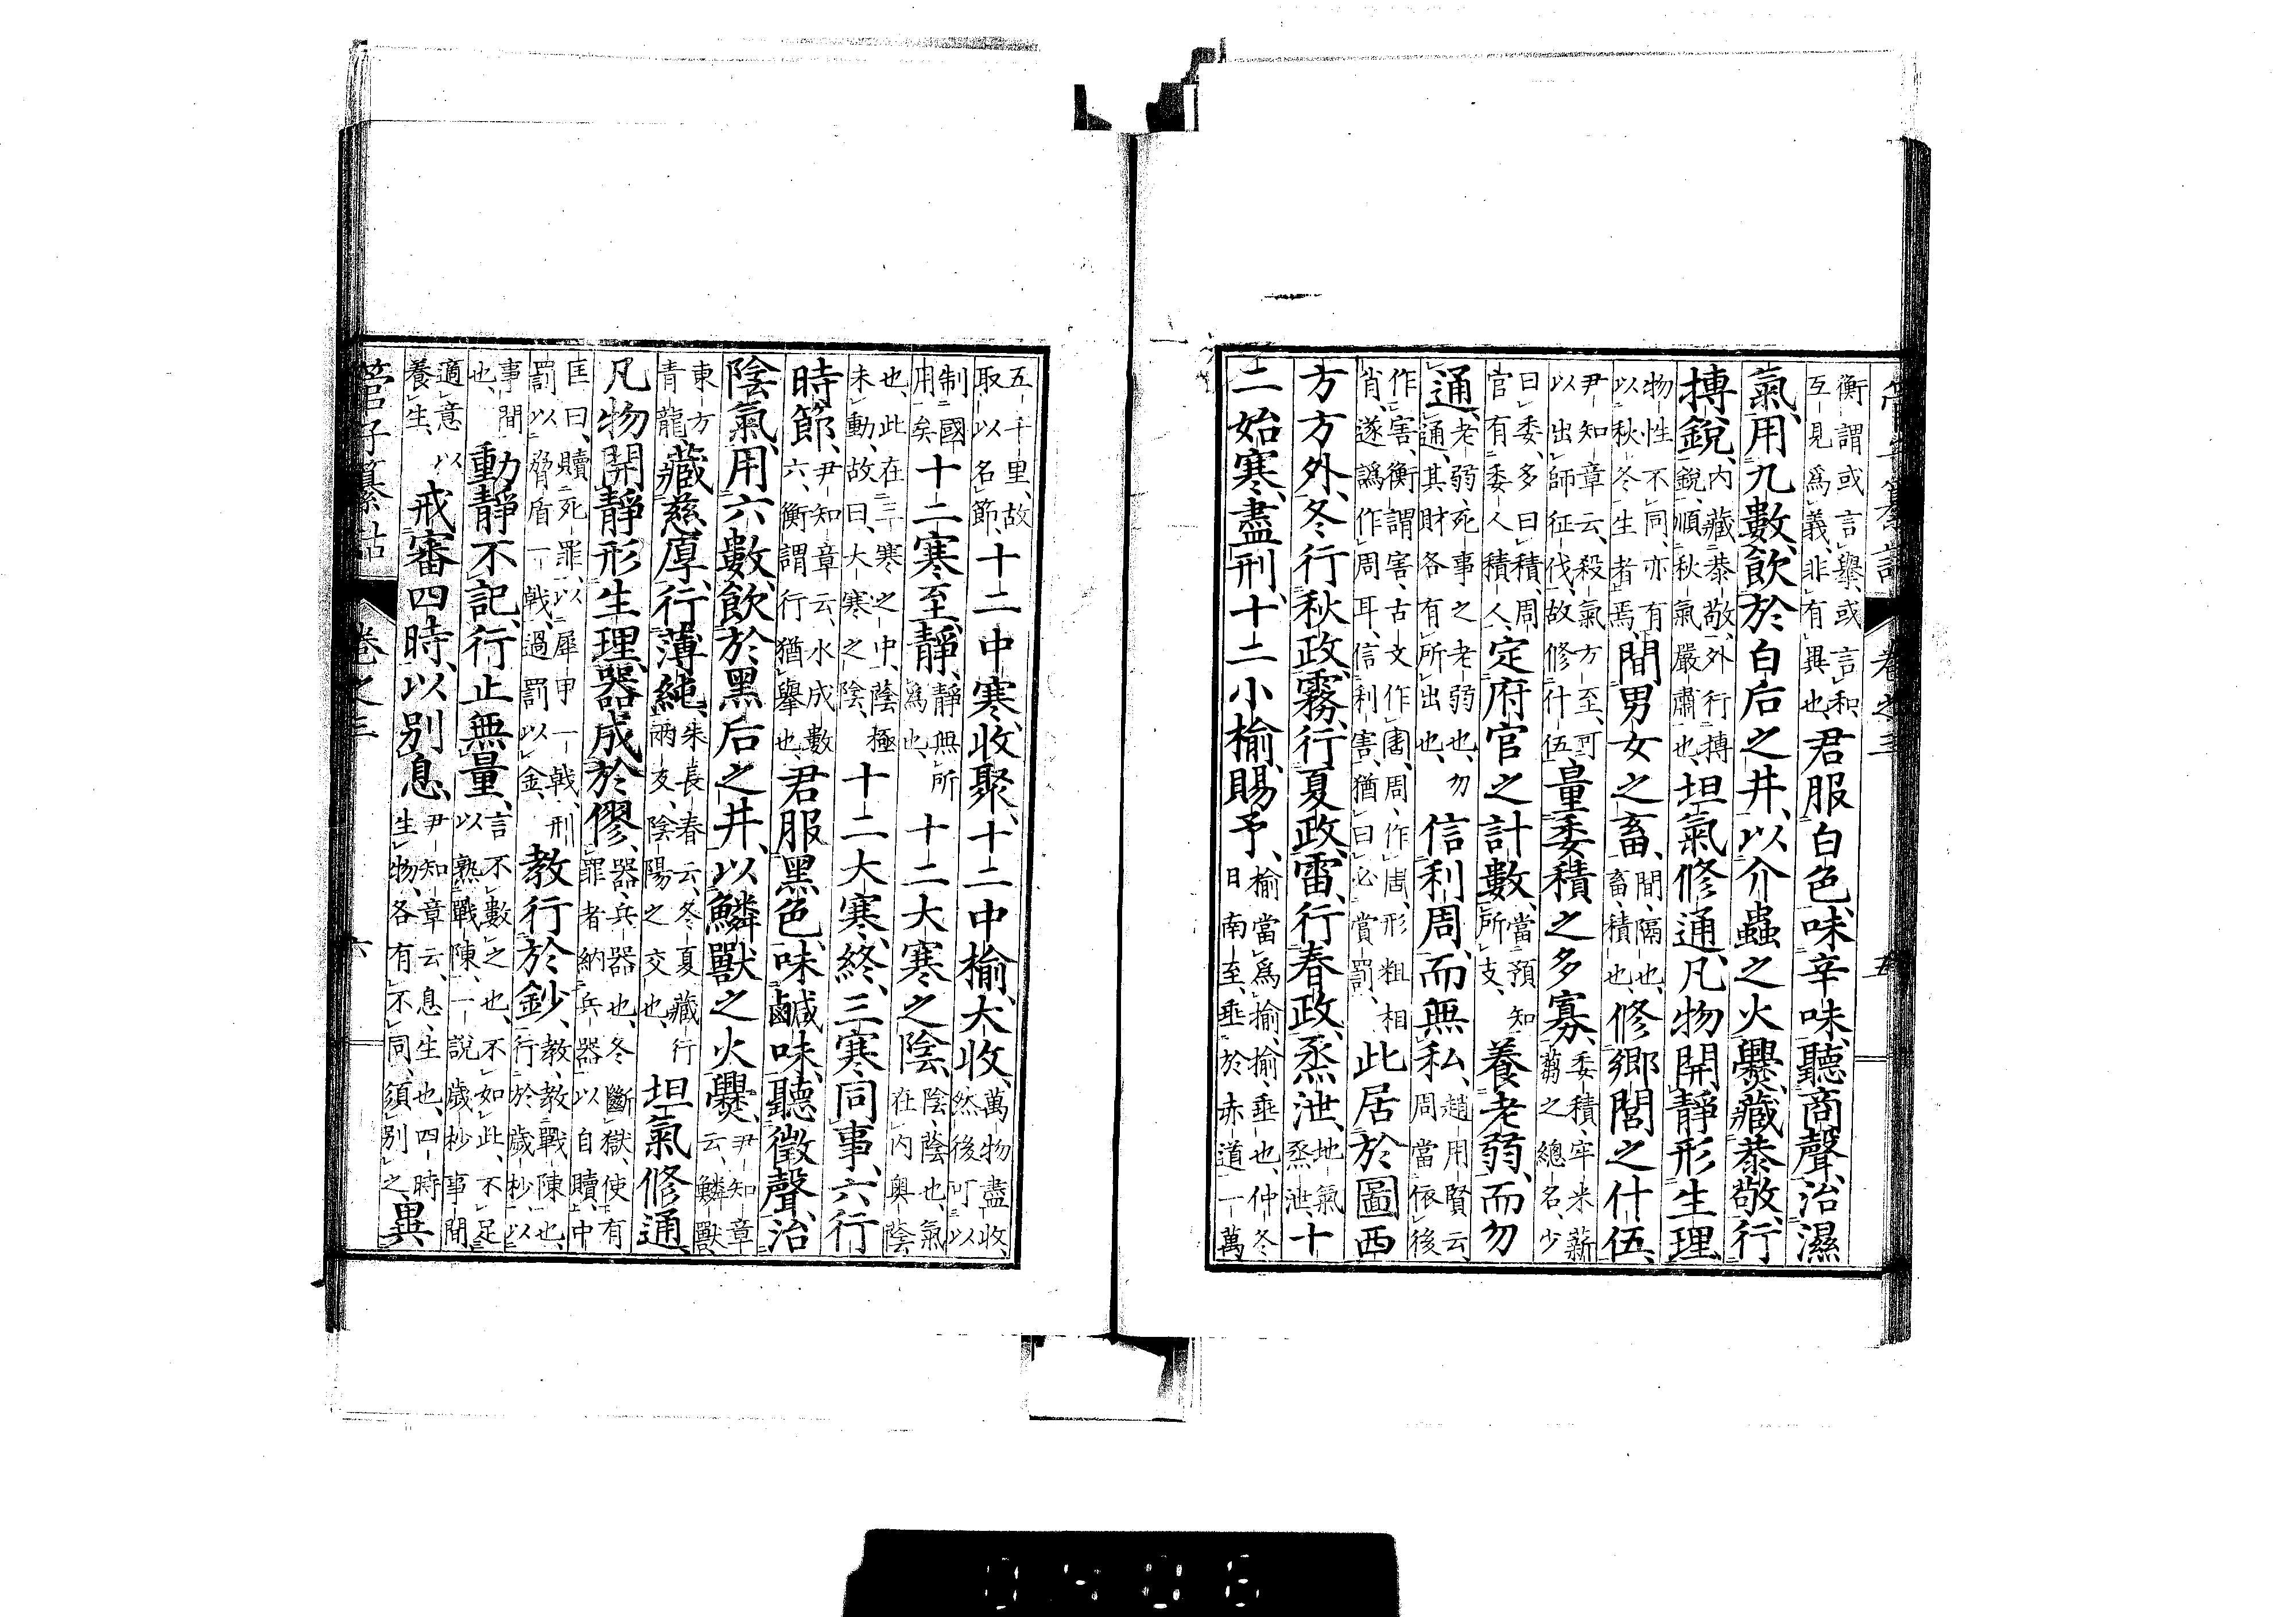 管子纂詁　卷之三　五
衡謂或言擧或言和互見爲義非有異也君服白色味辛味聽商聲治濕
氣用九數飮於白后之井以介蟲之火爨藏恭敬行
搏銳內藏恭敬外行搏銳順秋氣嚴肅也坦氣修通凡物開靜形生理
物性不同亦有以秋冬生者焉間男女之畜間隔也畜積也修鄉閭之什伍
尹知章云殺氣方至可以出師征伐故修什伍量委積之多寡委積牢米薪芻之總名少
曰委多曰積周官有委人積人定府官之計數當預知所支養老弱而勿
通老弱死事之老弱也勿通其財各有所出也信利周而無私趙用賢云周當依後
作害衡謂害古文作周作形粗相肖遂譌作周耳信利害猶曰必賞罰此居於圖西
方方外冬行秋政霧行夏政雷行春政烝泄地氣烝泄十
二始寒盡刑十二小榆賜予榆當爲揄揄垂也仲冬日南至垂於赤道一萬
五千里故取以名節十二中寒收聚十二中榆大收萬物盡收然後可以
制國用矣十二寒至靜靜無所爲也十二大寒之陰陰蔭也氣在內奧陰
也此在三寒之中蔭極未動故曰大寒之陰十二大寒終三寒同事六行
時節尹知章云水成數六衡謂行猶擧也君服黑色味鹹味聽徵聲治
陰氣用六數飮於黑后之井以鱗獸之火爨尹知章云鱗獸
東方青龍藏慈厚行薄純朱長春云冬夏藏行兩交陰陽之交也坦氣修通
凡物開靜形生理器成於僇器兵器也冬斷獄使有罪者納兵器以自贖中
匡曰贖死罪以犀甲一戟刑罰以脅盾一戟過罰以金教行於鈔教教戰陳也行於歲杪以
事間也動靜不記行止無量言不數之也不如此不足以熟戰陳一說歲杪事間
適意以養生戒審四時以別息尹知章云息生也四時生物各有不同須別之異
管子纂詁　卷之三　六